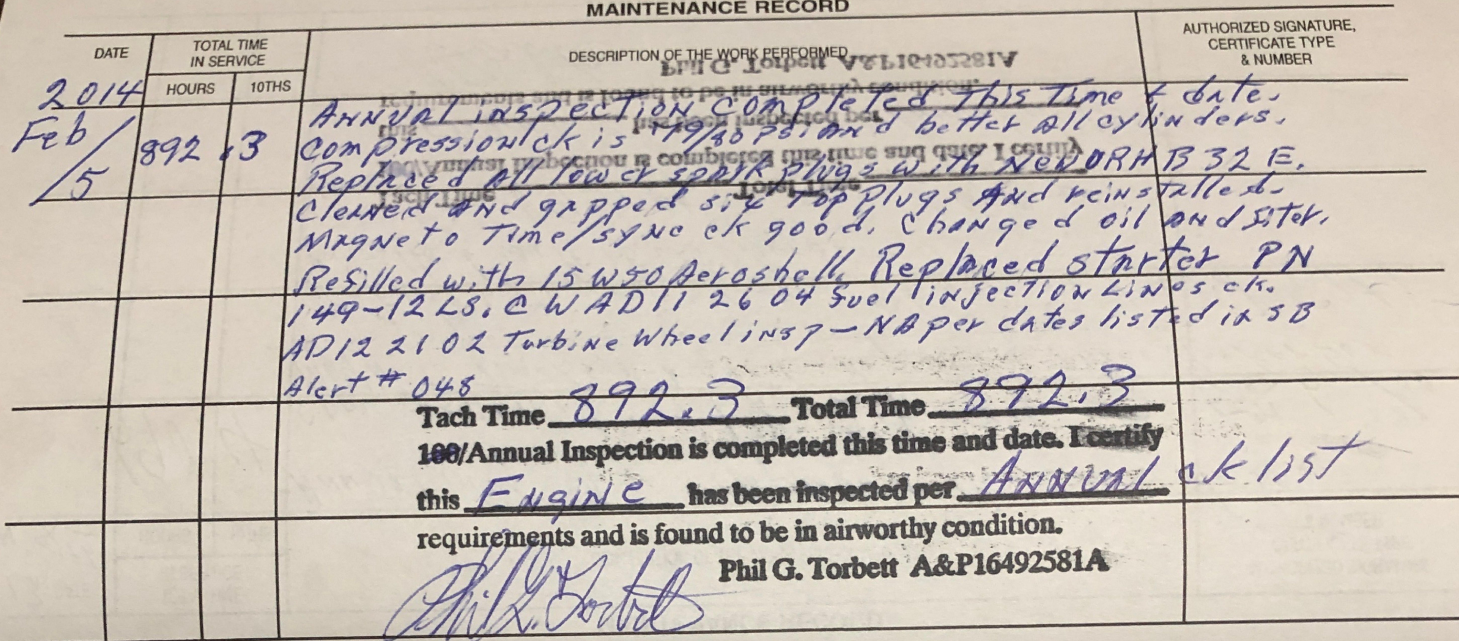 MAINTENANCE RECORD
DATE
TOTAL TIME IN SERVICE
HOURS
10THS
DESCRIPTION OF THE WORK PERFORMED
AUTHORIZED SIGNATURE, CERTIFICATE TYPE & NUMBER
2014
Feb/
/5
892 .3
Annual inspection completed this time & date.
Compression ck is 79/80 psi and better all cylinders.
Replaced all lower spark plugs with new URHB32E.
Cleaned and gapped six top plugs and reinstalled.
Magneto Time/sync ck good. Changed oil and filter.
Refilled with 15W50 Aeroshell. Replaced starter PN
149-12LS. CW AD 11 26 04 fuel injection lines ck.
AD 12 21 02 Turbine Wheel insp - NA per dates listed in SB
Alert # 048
Tach Time 892.3 Total Time 892.3
100/Annual Inspection is completed this time and date. I certify
this Engine has been inspected per Annual ck list
requirements and is found to be in airworthy condition.
Phil G. Torbett A&P16492581A
Phil G. Torbett